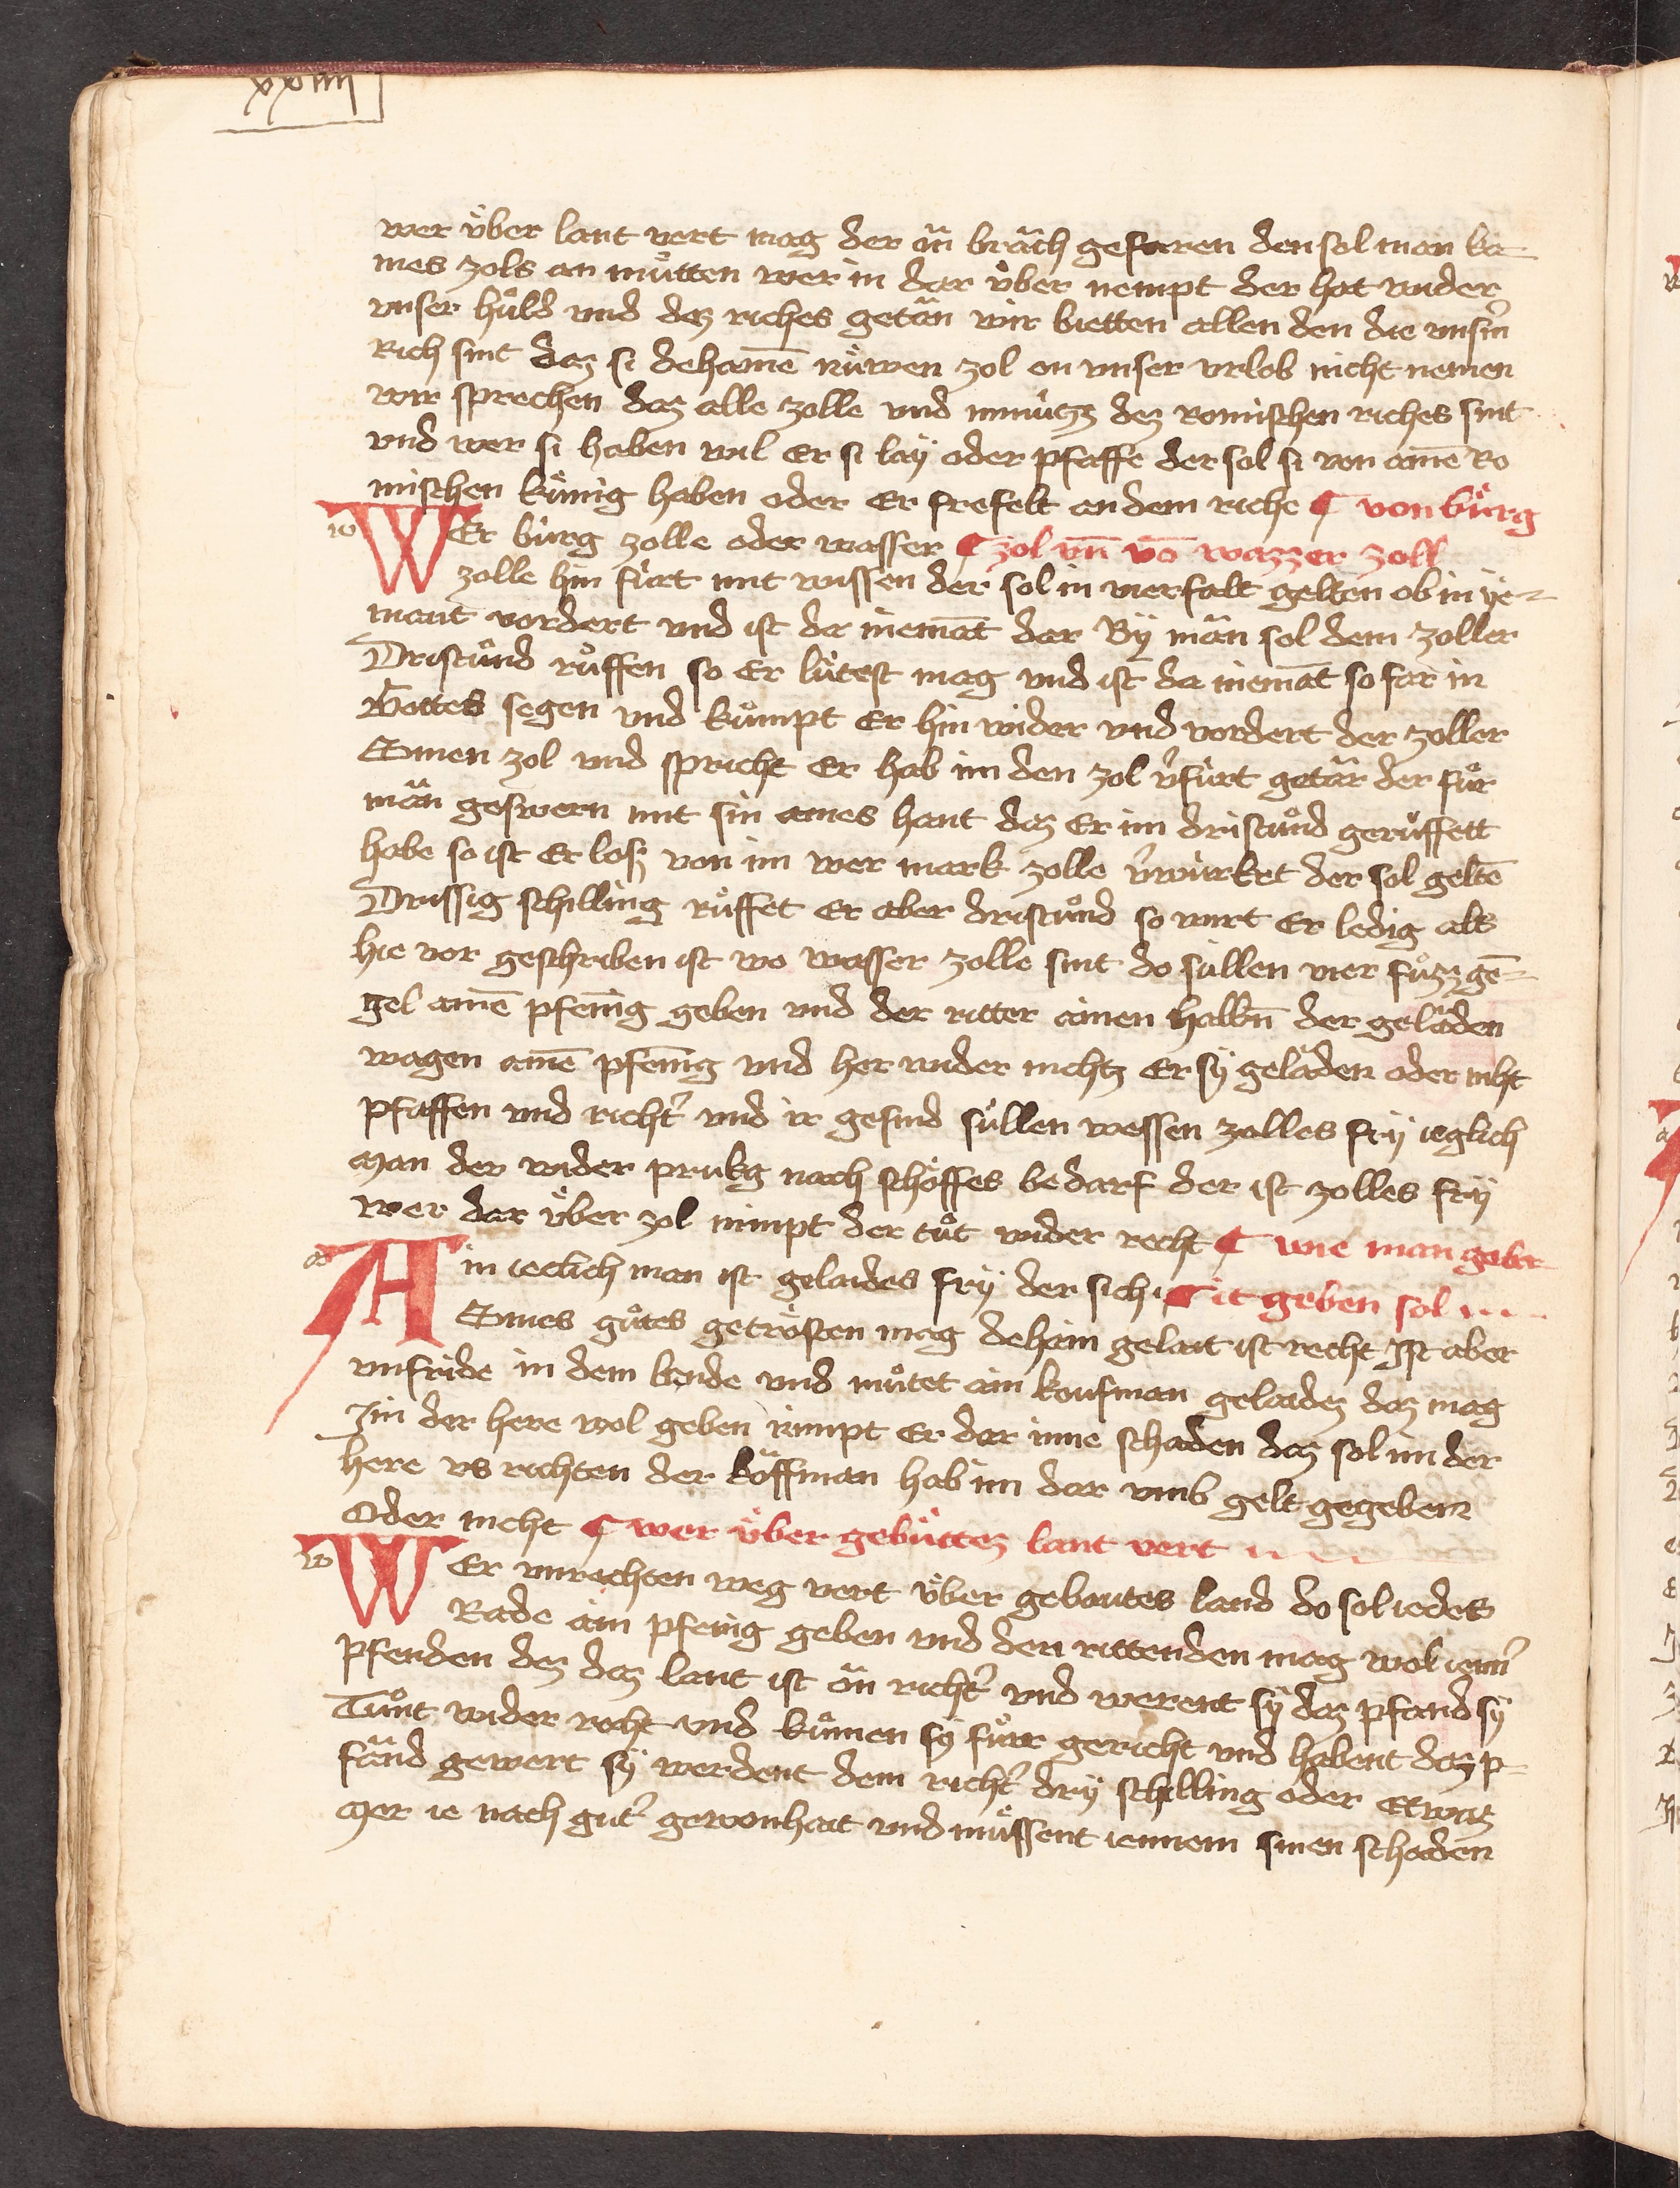 xxiiii
wer über lant vert mag der ân brâch gefaren den sol man kai-
nes zols an mütten wer in dar über nempt der hat wider
vnser huld vnd dez riches getân wir bietten allen den die vnsm̄
Rich sint daz si dehainē nüwen zol on vnser vrlob nicht nemen
wir sprechen daz alle zolle vnd müntz dez romischen riches sint
vnd wer si haben wil Er si lay oder pfaffe der sol si von ainē Ro
mischen küng haben oder Er frefelt an dem riche ¶ von bürg
w WEr bürg zolle oder wasser ¶ zol vn̄ vō wazzer zoll
zolle hin fürt mit wissen der sol in vierfalt gelten ob in ÿe-
mant vordert vnd ist da niemāt dar Bÿ män sol dem zoller
Dristund rüffen so Er lutest mag vnd ist da niemāt so far in
Gottes segen vnd kumpt Er hin wider vnd vordert der zoller
Sinen zol vnd spricht Er hab im den zol v̓fürt getär der für
män geswern mit sin aines hant daz Er im dristund gerüffett
habe so ist Er losz von im wer mark zolle v̓würket der sol geltē
Drissig schilling rüffet Er aber dristund so wirt Er ledig als
hie vor geschriben ist wo wasser zolle sint do süllen vier fuzz gē-
gel ainē pfenīg geben vnd der ritter ainen halbn̄ der geläden
wagen ainē pfenīg vnd her wider nichtz Er sÿ geläden oder niht
pfaffen vnd richt̓ vnd ir gesind süllen wessen zolles frÿ ieglich
Man der wider prukg nach schöffes bedarf der ist zolles frÿ
wer dar über zol nimpt der tüt wider recht ¶ wie man geber
a Ain ieclich man ist gelaides frÿ der sich ¶ it geben sol
Sines gutes getrösten mag dehain gelait ist recht Ist aber
vnfride in dem lande vnd mutet ain koufman gelaidez daz mag
Im der here wol geben nimpt Er dar inne schaden daz sol im der
here vs richten der köffman hab im dar vmb gelt gegeben
Oder nicht ¶ wer über gebüttez lant vert
w WEr vnrechten weg vert über gebautes land do sol iedes
Rade ain pfenig geben vnd den rittenden mag wol ienn̓
pfenden dez daz lant ist ân richt̓ vnd werent sÿ daz pfand sÿ
Tunt wider recht vnd kumen sÿ für gericht vnd habent daz p-
fänd gewert sÿ werdent dem richt̓ drÿ schilling oder Etwaz
Mer ie nach gut̓ gewonhait vnd müssent iennem sinen schaden